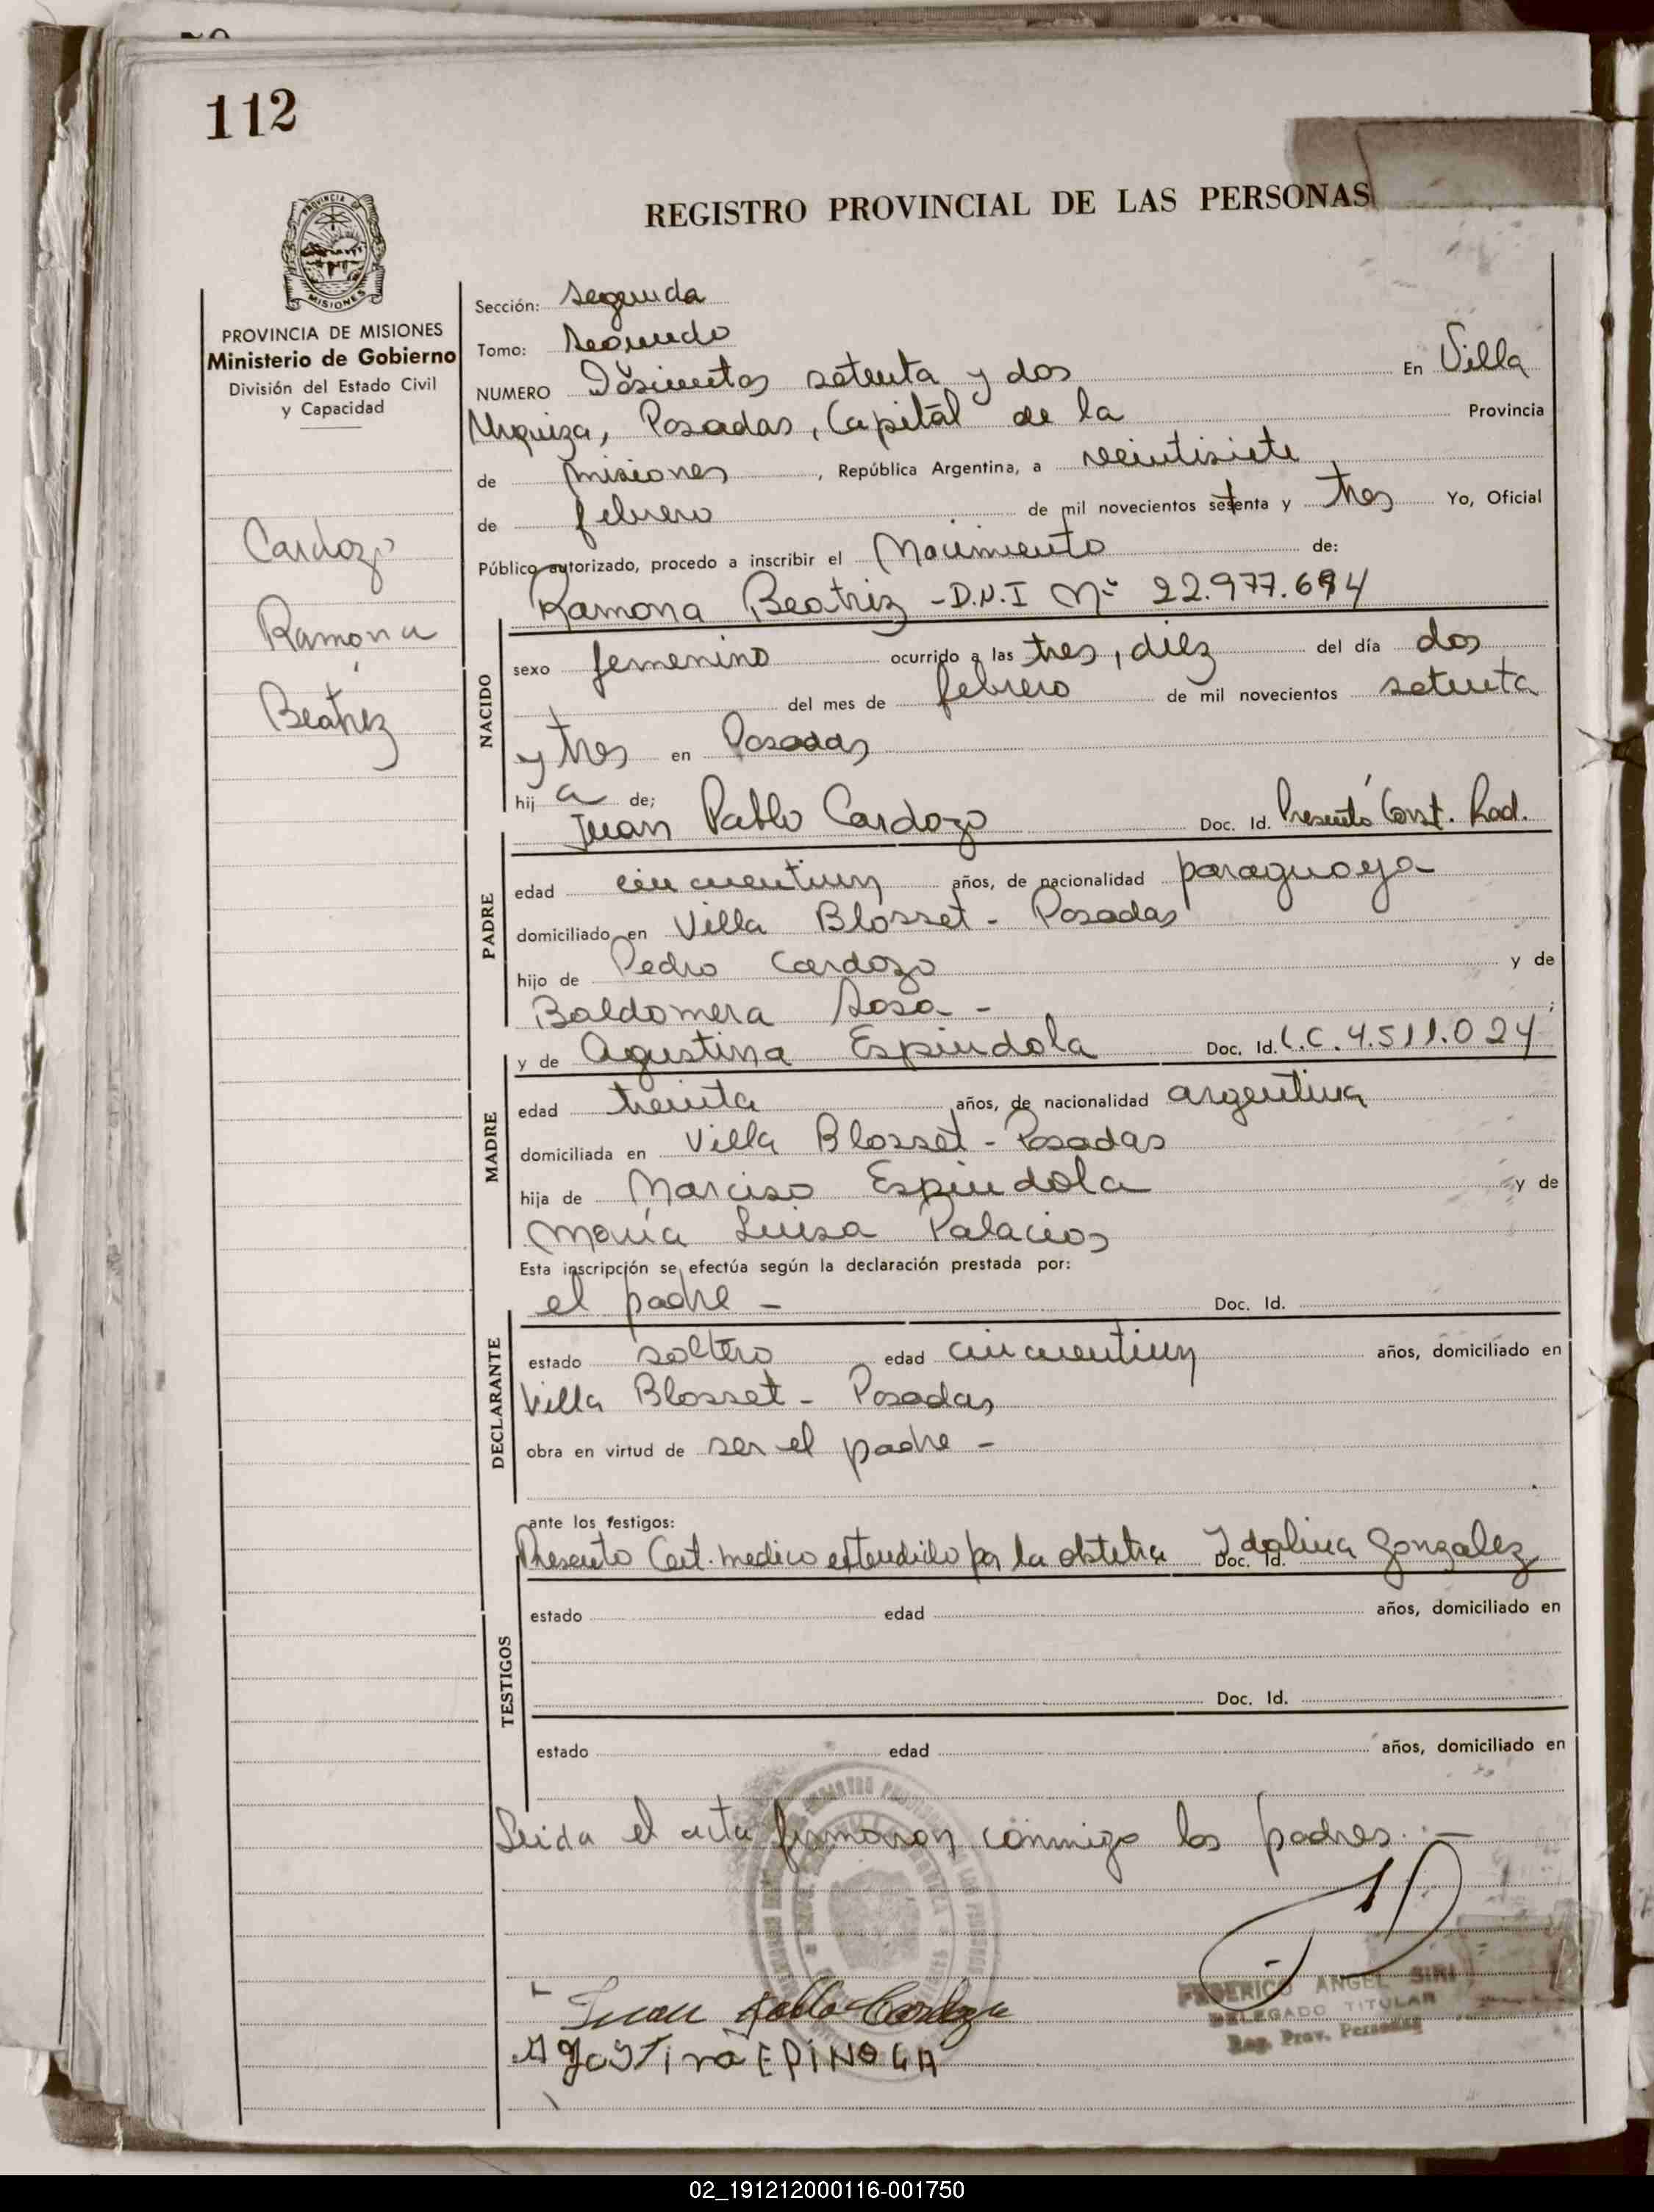 112
REGISTRO PROVINCIAL DE LAS PERSONAS
PROVINCIA DE
MISIONES
PROVINCIA DE MISIONES
Ministerio de Gobierno
División del Estado Civil
y Capacidad
Cardozo
Ramona
Beatriz
Sección: segunda
Tomo: segundo
NUMERO Dosientos setenta y dos En Villa
Urquiza, Posadas, Capital de la Provincia
de misiones, República Argentina, a veintisiete
de febrero de mil novecientos setenta y tres Yo, Oficial
Público autorizado, procedo a inscribir el Nacimiento de:
Ramona Beatriz - D.N.I Nº 22.977.694
NACIDO
sexo femenino ocurrido a las tres, diez del día dos
del mes de febrero de mil novecientos setenta
y tres en Posadas
hij a de;
Juan Pablo Cardozo Doc. Id. Presentó Const. Rad.
PADRE
edad cincuentiun años, de nacionalidad paraguaya
domiciliado en Villa Blosset - Posadas
hijo de Pedro Cardozo y de
Baldomera Sosa - ;
y de Agustina Espindola Doc. Id. L.C. 4.511.024
MADRE
edad treinta años, de nacionalidad argentina
domiciliada en Villa Blosset - Posadas
hija de Narciso Espindola y de
María Luisa Palacios
Esta inscripción se efectúa según la declaración prestada por:
el padre - Doc. Id.
DECLARANTE
estado soltero edad cincuentiun años, domiciliado en
Villa Blosset - Posadas
obra en virtud de ser el padre -
ante los testigos:
Presento Cert. medico extendido por la obstetra Idolina Gonzalez
Doc. Id.
TESTIGOS
estado edad años, domiciliado en
Doc. Id.
estado edad años, domiciliado en
Leida el acta firmaron conmigo los padres. -
Juan Pablo Cardozo
AgusTina EPINOLA
FEDERICO ANGEL SIRI
DELEGADO TITULAR
Reg. Prov. Personas
02_191212000116-001750